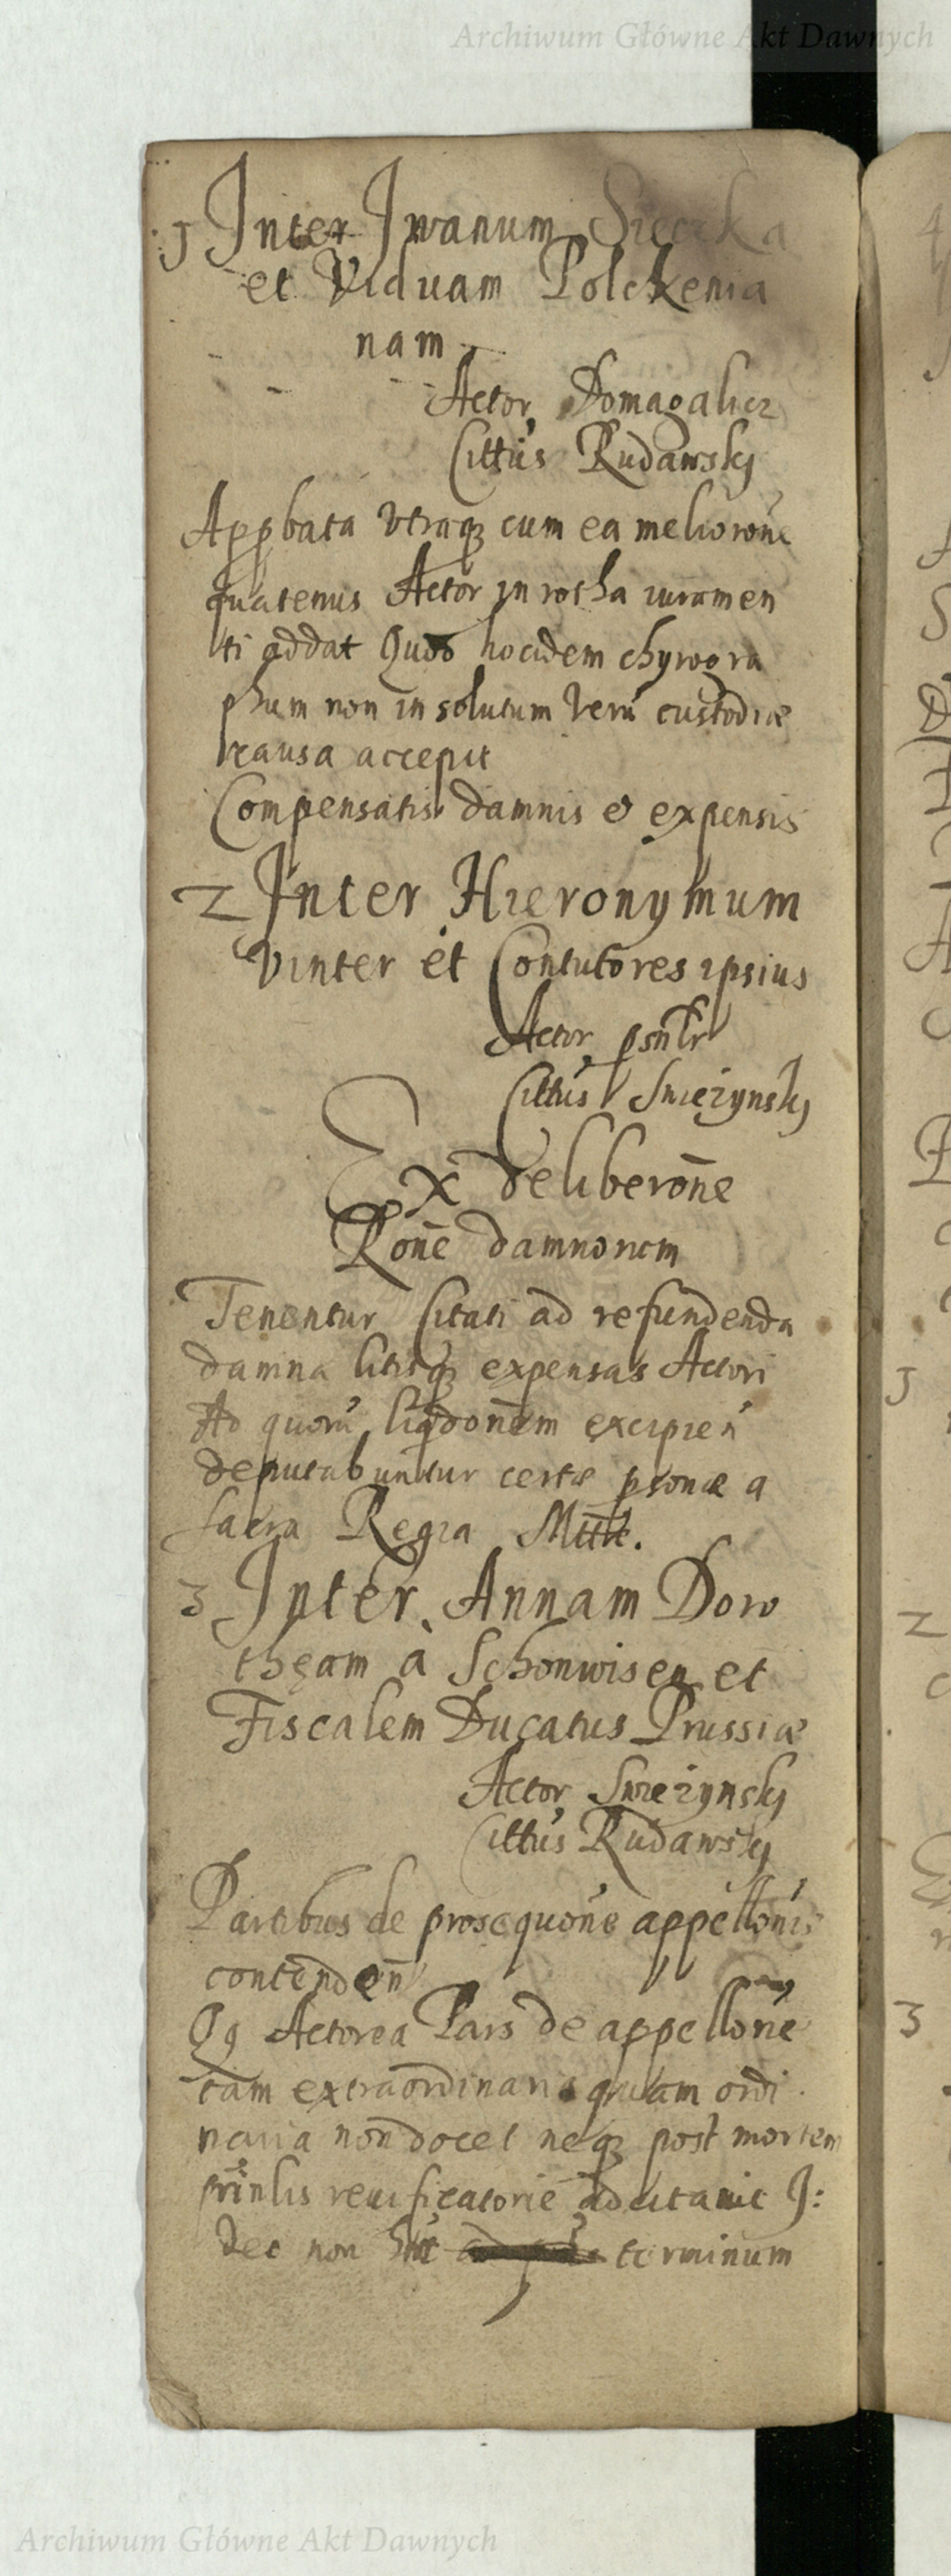 Archiwum Główne Akt Dawnych
1 Inter Iwanum Sieczka
et Viduam Polckenia
nam
Actor Domagalicz
Cittus Rudawskj
Appbata vtraqz cum ea meliorone
quatenus Actor in rotha iuramen
ti addat Quod hocidem chyrogra
phum non in solutum veru custodiæ
causa accepit
Compensatis damnis et expensis
2 Inter Hieronymum
Vinter et Contutores ipsius
Actor psnlr
Cittus Swieżynskj
Ex deliberone
Rone damnorum
Tenentur Citati ad refundenda
damna litisqz expensas Actori
Ad quoru liqdonem excipien
deputabuntur certæ psonæ a
Sacra Regia Mtte.
3 Inter Annam Doro
theam à Schonwisen et
Fiscalem Ducatus Prussiæ
Actor Swieżynskj
Cittus Rudawskj
Partibus de prosequone appellonis
contenden
Qq Actorea Pars de appellone
tam extraordinaria quam ordi
naria non docet neqz post mortem
prinlis reuificatorie adcitauit I:
deo non hūt terminum
Archiwum Główne Akt Dawnych